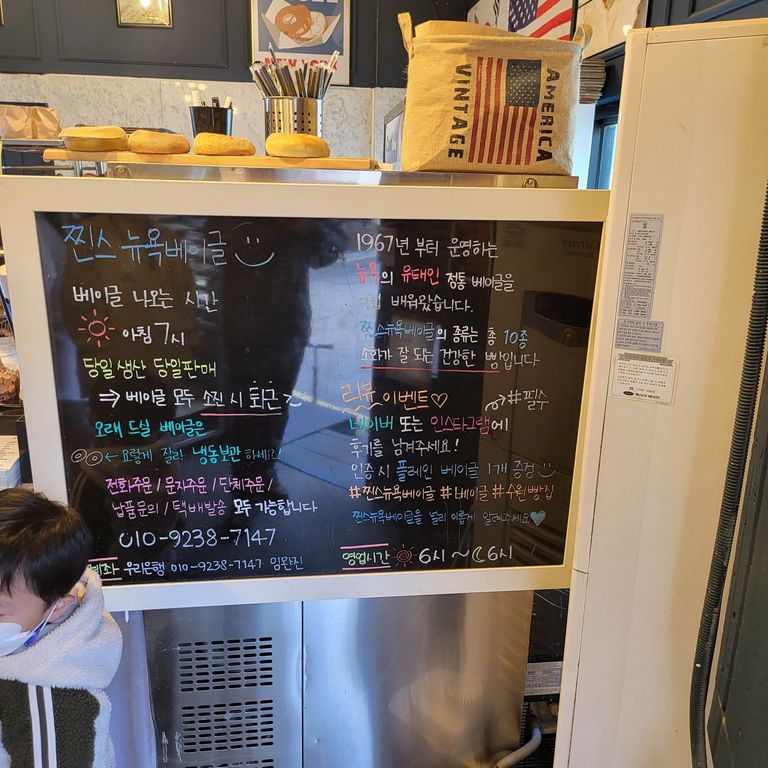 AMERICA
VINTAGE
찐스 뉴욕베이글
베이글 나오는 시간
아침 7시
당일생산 당일판매
⇒ 베이글 모두 소진 시 퇴근
오래 드실 베이글은
← 요렇게 잘라 냉동보관 하세요!
전화주문 / 문자주문 / 단체주문 /
납품문의 / 택배발송 모두 가능합니다
010-9238-7147
계좌 우리은행 010-9238-7147 임완진
1967년 부터 운영하는
뉴욕의 유태인 정통 베이글을
배워왔습니다.
찐스뉴욕베이글의 종류는 총 10종
소화가 잘 되는 건강한 빵입니다
리뷰 이벤트♡
#필수
네이버 또는 인스타그램에
후기를 남겨주세요!
인증시 플레인 베이글 1개 증정
#찐스뉴욕베이글 #베이글 #수원빵집
찐스뉴욕베이글을 널리 이롭게 알려주세요♥
영업시간 6시 ~ 6시